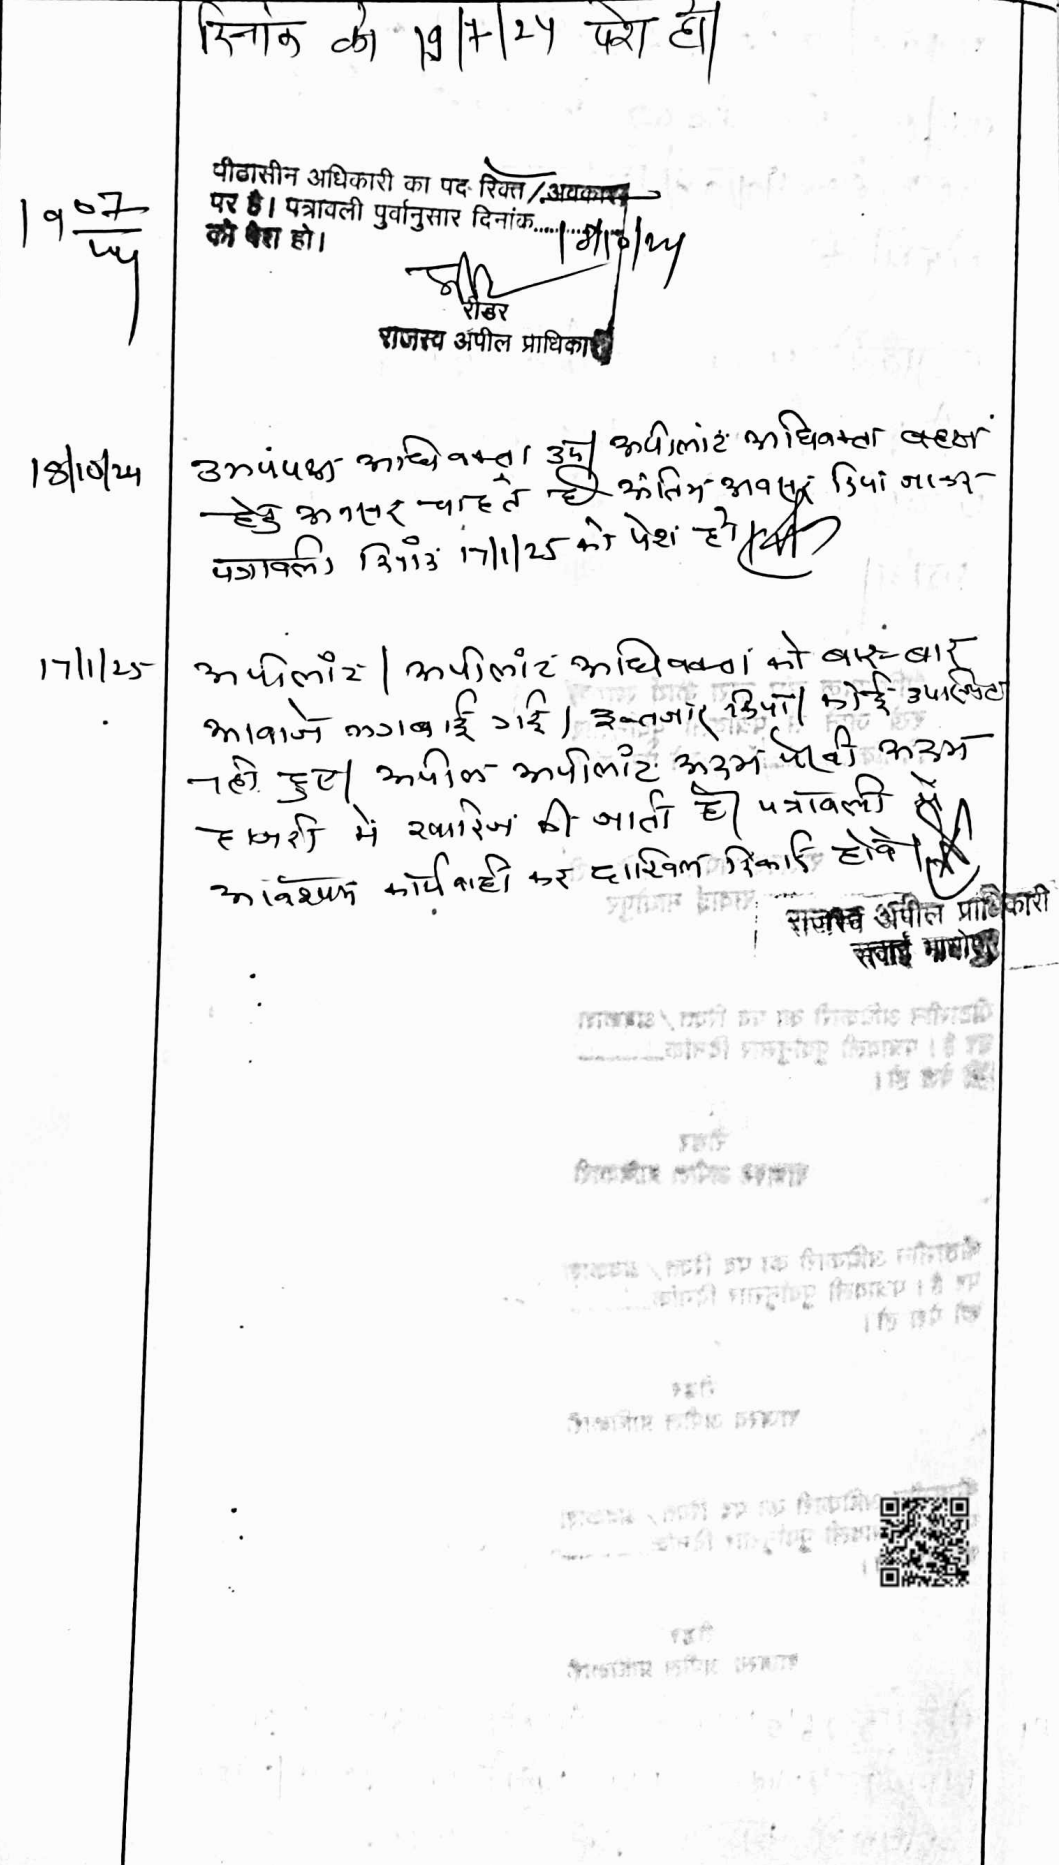 दिनांक को 19/7/24 पेश हो।
पीठासीन अधिकारी का पद रिक्त/अवकाश
पर है। पत्रावली पुर्वानुसार दिनांक......18/10/24
को पेश हो।
1907
24
रीडर
राजस्व अपील प्राधिकारी
18/10/24 उभयपक्ष अधिवक्ता उप। अपीलांट अधिवक्ता बहस
हेतु अवसर चाहते है अंतिम अवसर दिया जाकर
पत्रावली दिनांक 17/1/25 को पेश हो
17/1/25 अपीलांट / अपीलांट अधिवक्ता को बार-बार
आवाजे लगवाई गई। इन्तजार किया। कोई उपस्थित
नही हुए। अपील अपीलांट अदम पैरवी अदम
हाजरी में खारिज की जाती है। पत्रावली में
आवश्यक कार्यवाही कर दाखिल रिकार्ड होवे।
राजस्व अपील प्राधिकारी
सवाई माधोपुर